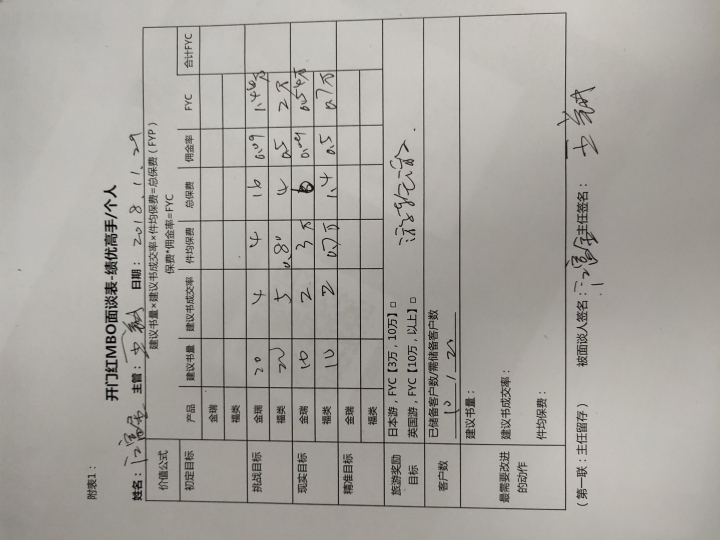 附表1：
开门红MBO面谈表-绩优高手/个人
姓名： 主管： 日期： 2018.11.29
价值公式 建议书量×建议书成交率×件均保费=总保费（FYP）
保费*佣金率=FYC
产品 建议书量 建议书成交率 件均保费 总保费 佣金率 FYC 合计FYC
初定目标 金瑞
福类
挑战目标 金瑞 20 4 4 16 0.09 1.44万
福类 20 5 0.80 4 0.5 2万
现实目标 金瑞 10 2 3万 6 0.09 0.54万
福类 10 2 0.7万 1.4 0.5 0.7万
精准目标 金瑞
福类
旅游奖励目标 日本游，FYC【3万，10万】□
英国游，FYC【10万，以上】□
客户数 已储备客户数/需储备客户数
10 / 20
最需要改进的动作 建议书量：
建议书成交率：
件均保费：
（第一联：主任留存） 被面谈人签名： 主任签名：